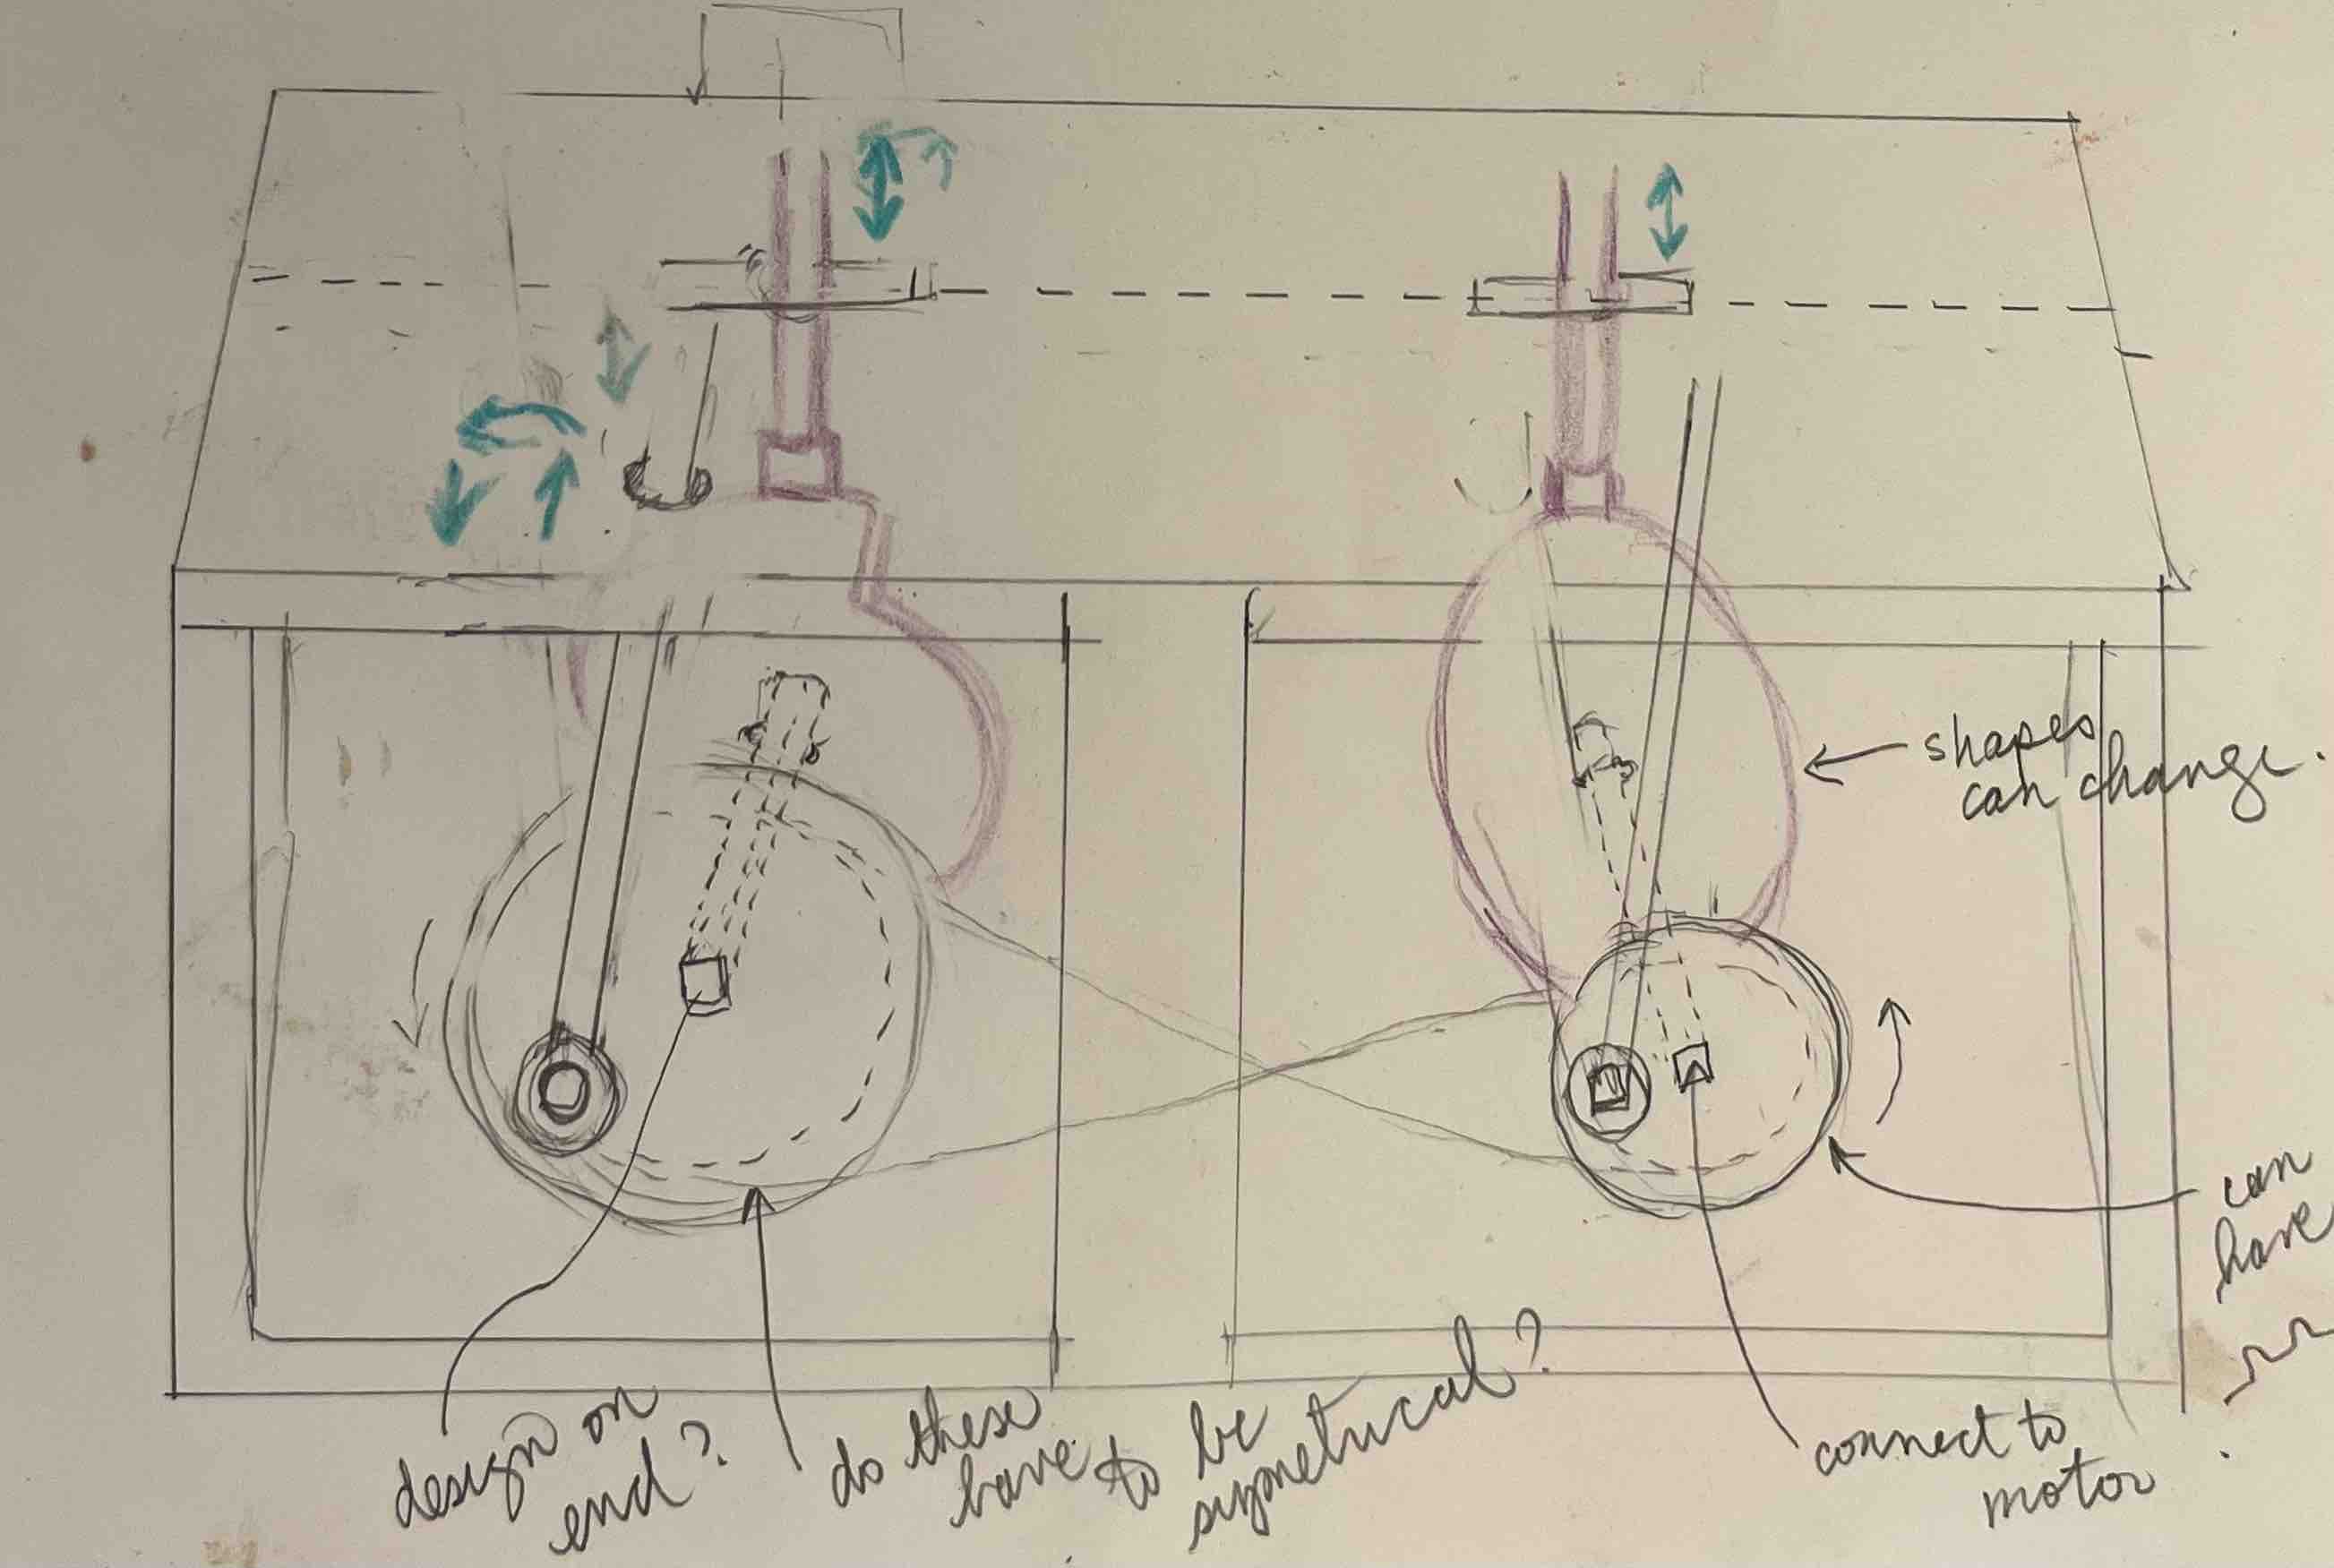 shapes
can change.
can
have
design on
end?
do these
have to be
symetrical?
connect to
motor